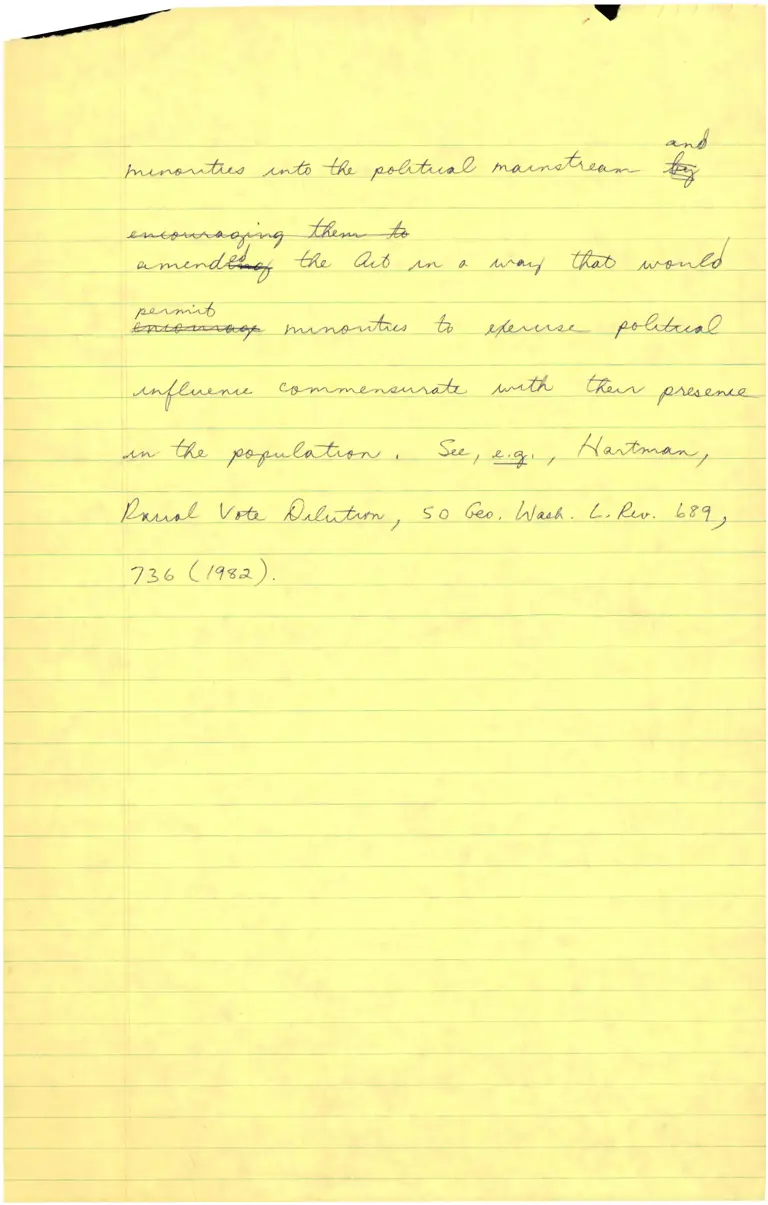 and
minorities into the political mainstream by
encouraging them to
amended the Act in a way that would
permit
encourage minorities to exercise political
influence commensurate with their presence
in the population. See, e.g., Hartman,
Racial Vote Dilution, 50 Geo. Wash. L. Rev. 689,
736 (1982).